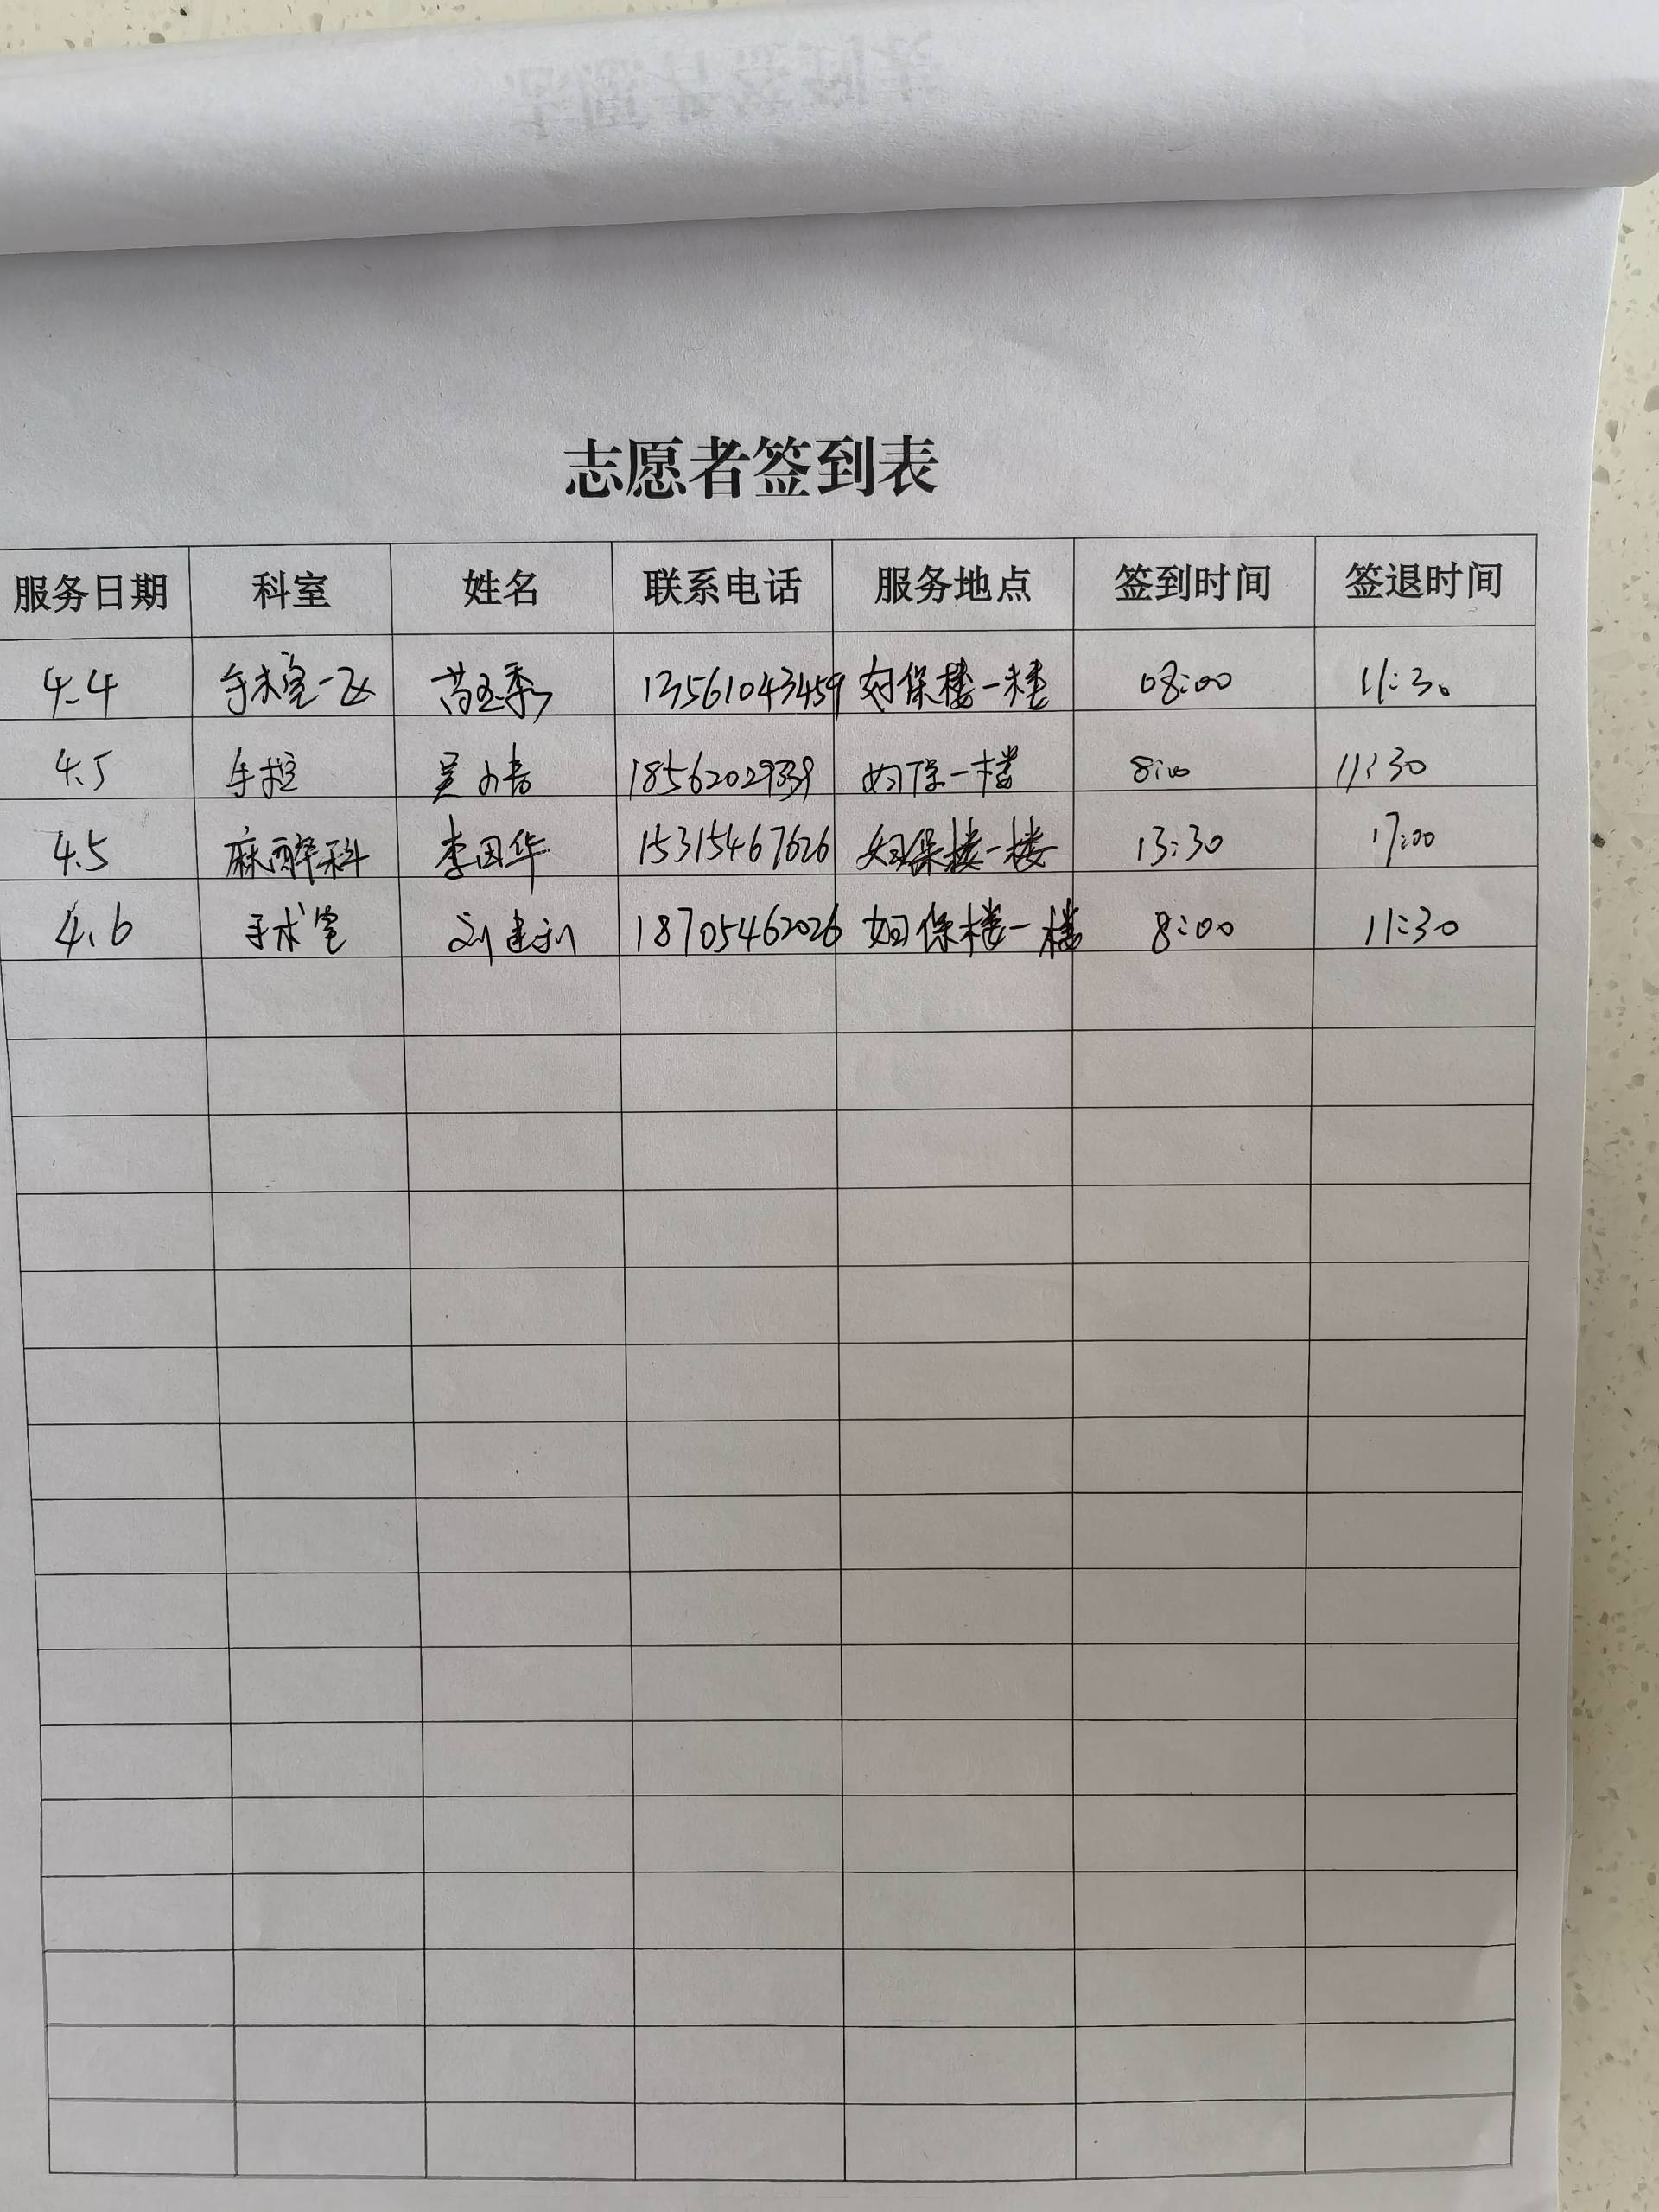 志愿者签到表
服务日期 科室 姓名 联系电话 服务地点 签到时间 签退时间
4.4 手术室一区 苗玉秀 13561043459 妇保楼一楼 08:00 11:30
4.5 手控 吴 18562029339 妇保一楼 8:00 11:30
4.5 麻醉科 李国华 15315467626 妇保楼一楼 13:30 17:00
4.6 手术室 刘建利 18705462026 妇保楼一楼 8:00 11:30